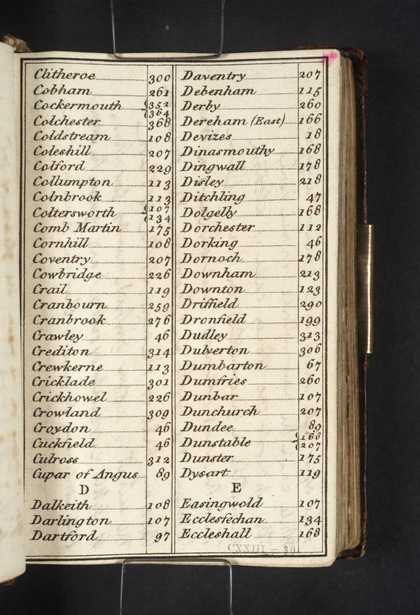 Clitheroe 300
Cobham 261
Cockermouth {352
{364
Colchester 368
Coldstream 108
Coleshill 207
Colford 229
Collumpton 113
Colnbrook 113
Coltersworth {107
{134
Comb Martin 175
Cornhill 108
Coventry 207
Cowbridge 226
Crail 119
Cranbourn 259
Cranbrook 276
Crawley 46
Crediton 314
Crewkerne 113
Cricklade 301
Crickhowel 226
Crowland 309
Croydon 46
Cuckfield 46
Culross 312
Cupar of Angus 89
D
Dalkeith 108
Darlington 107
Dartford 97
Daventry 207
Debenham 115
Derby 260
Dereham (East) 166
Devizes 18
Dinasmouthy 168
Dingwall 178
Disley 218
Ditchling 47
Dolgelly 168
Dorchester 112
Dorking 46
Dornoch 178
Downham 213
Downton 123
Driffield 290
Dronfield 199
Dudley 313
Dulverton 306
Dumbarton 67
Dumfries 260
Dunbar 107
Dunchurch 207
Dundee 89
Dunstable {168
{207
Dunster 175
Dysart 119
E
Easingwold 107
Ecclesfechan 134
Eccleshall 168